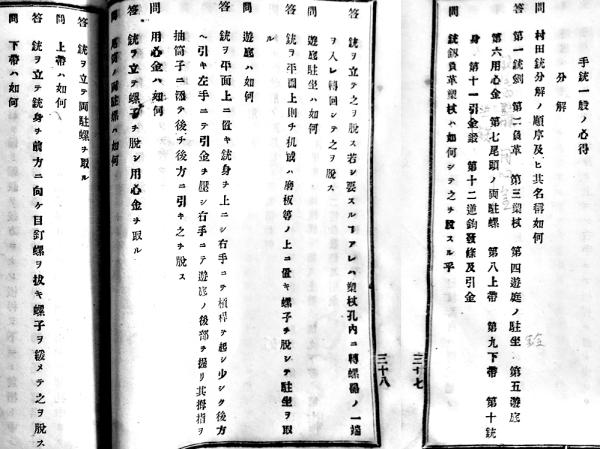 手銃一般ノ心得
分解
問 村田銃分解ノ順序及ヒ其名稱如何
答 第一銃劍 第二負革 第三槊杖 第四遊底ノ駐坐 第五遊底
第六用心金 第七尾頭ノ両駐螺 第八上帶 第九下帶 第十銃
身 第十一引金鍰 第十二逆鈎發條及引金
問 銃劍負革槊杖ハ如何シテ之ヲ脫スル乎
三十七
答 銃ヲ立テ之ヲ脫ス若シ要スルヿアレハ槊杖孔內ニ轉螺器ノ一端
ヲ入レ轉回シテ之ヲ脫ス
問 遊底駐坐ハ如何
答 銃ヲ平圓上則チ机或ハ磨板等ノ上ニ置キ螺子ヲ脫シテ駐坐ヲ取
ル
問 遊底ハ如何
答 銃ヲ平面上ニ置キ銃身ヲ上ニシ右手ニテ槓桿ヲ起シ少シク後方
ヘ引キ左手ニテ引金ヲ壓シ右手ニテ遊底ノ後部ヲ握リ其拇指ヲ
抽筒子ニ添テ後チ後方ニ引キ之ヲ脫ス
問 用心金ハ如何
答 銃ヲ立テ螺子ヲ脫シ用心金ヲ取ル
問 尾頭ノ両駐螺ハ如何
三十八
答 銃ヲ立テ両駐螺ヲ取ル
問 上帶ハ如何
答 銃ヲ立テ銃身ヲ前方ニ向ケ目釘螺ヲ拔キ螺子ヲ緩メテ之ヲ脫ス
問 下帶ハ如何